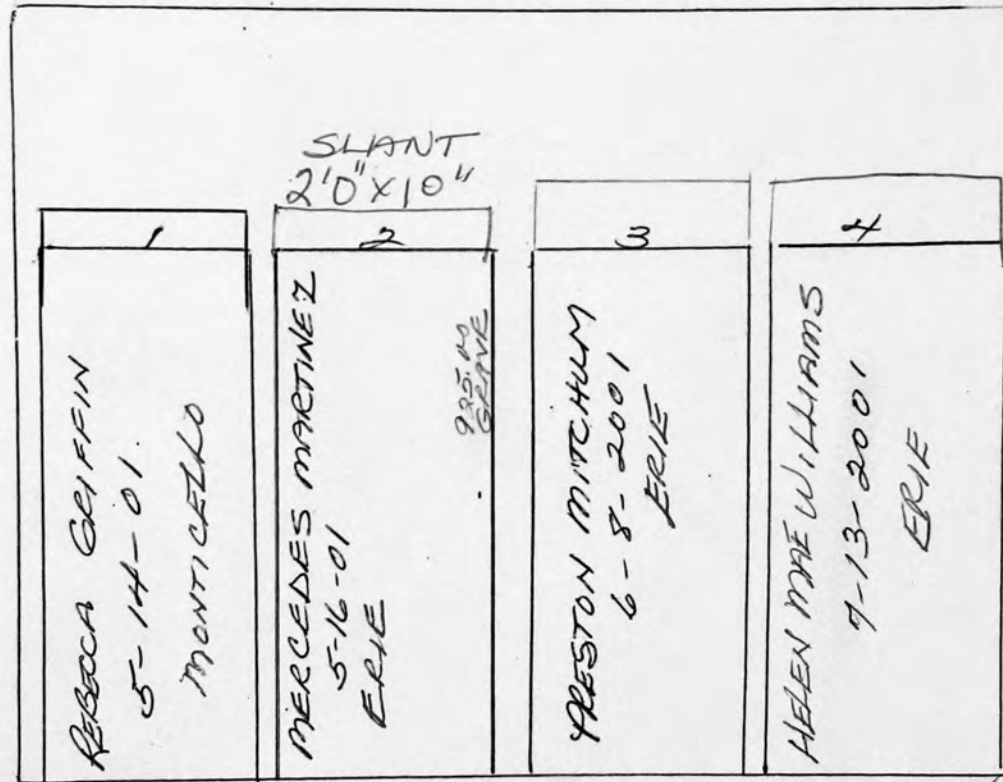 SLANT
2'0" X 10"
1
REBECCA GRIFFIN
5-14-01
MONTICELLO
2
MERCEDES MARTINEZ
5-16-01
ERIE
GRAVE
3
PRESTON MITCHUM
6-8-2001
ERIE
4
HELEN MAE WILLIAMS
7-13-2001
ERIE